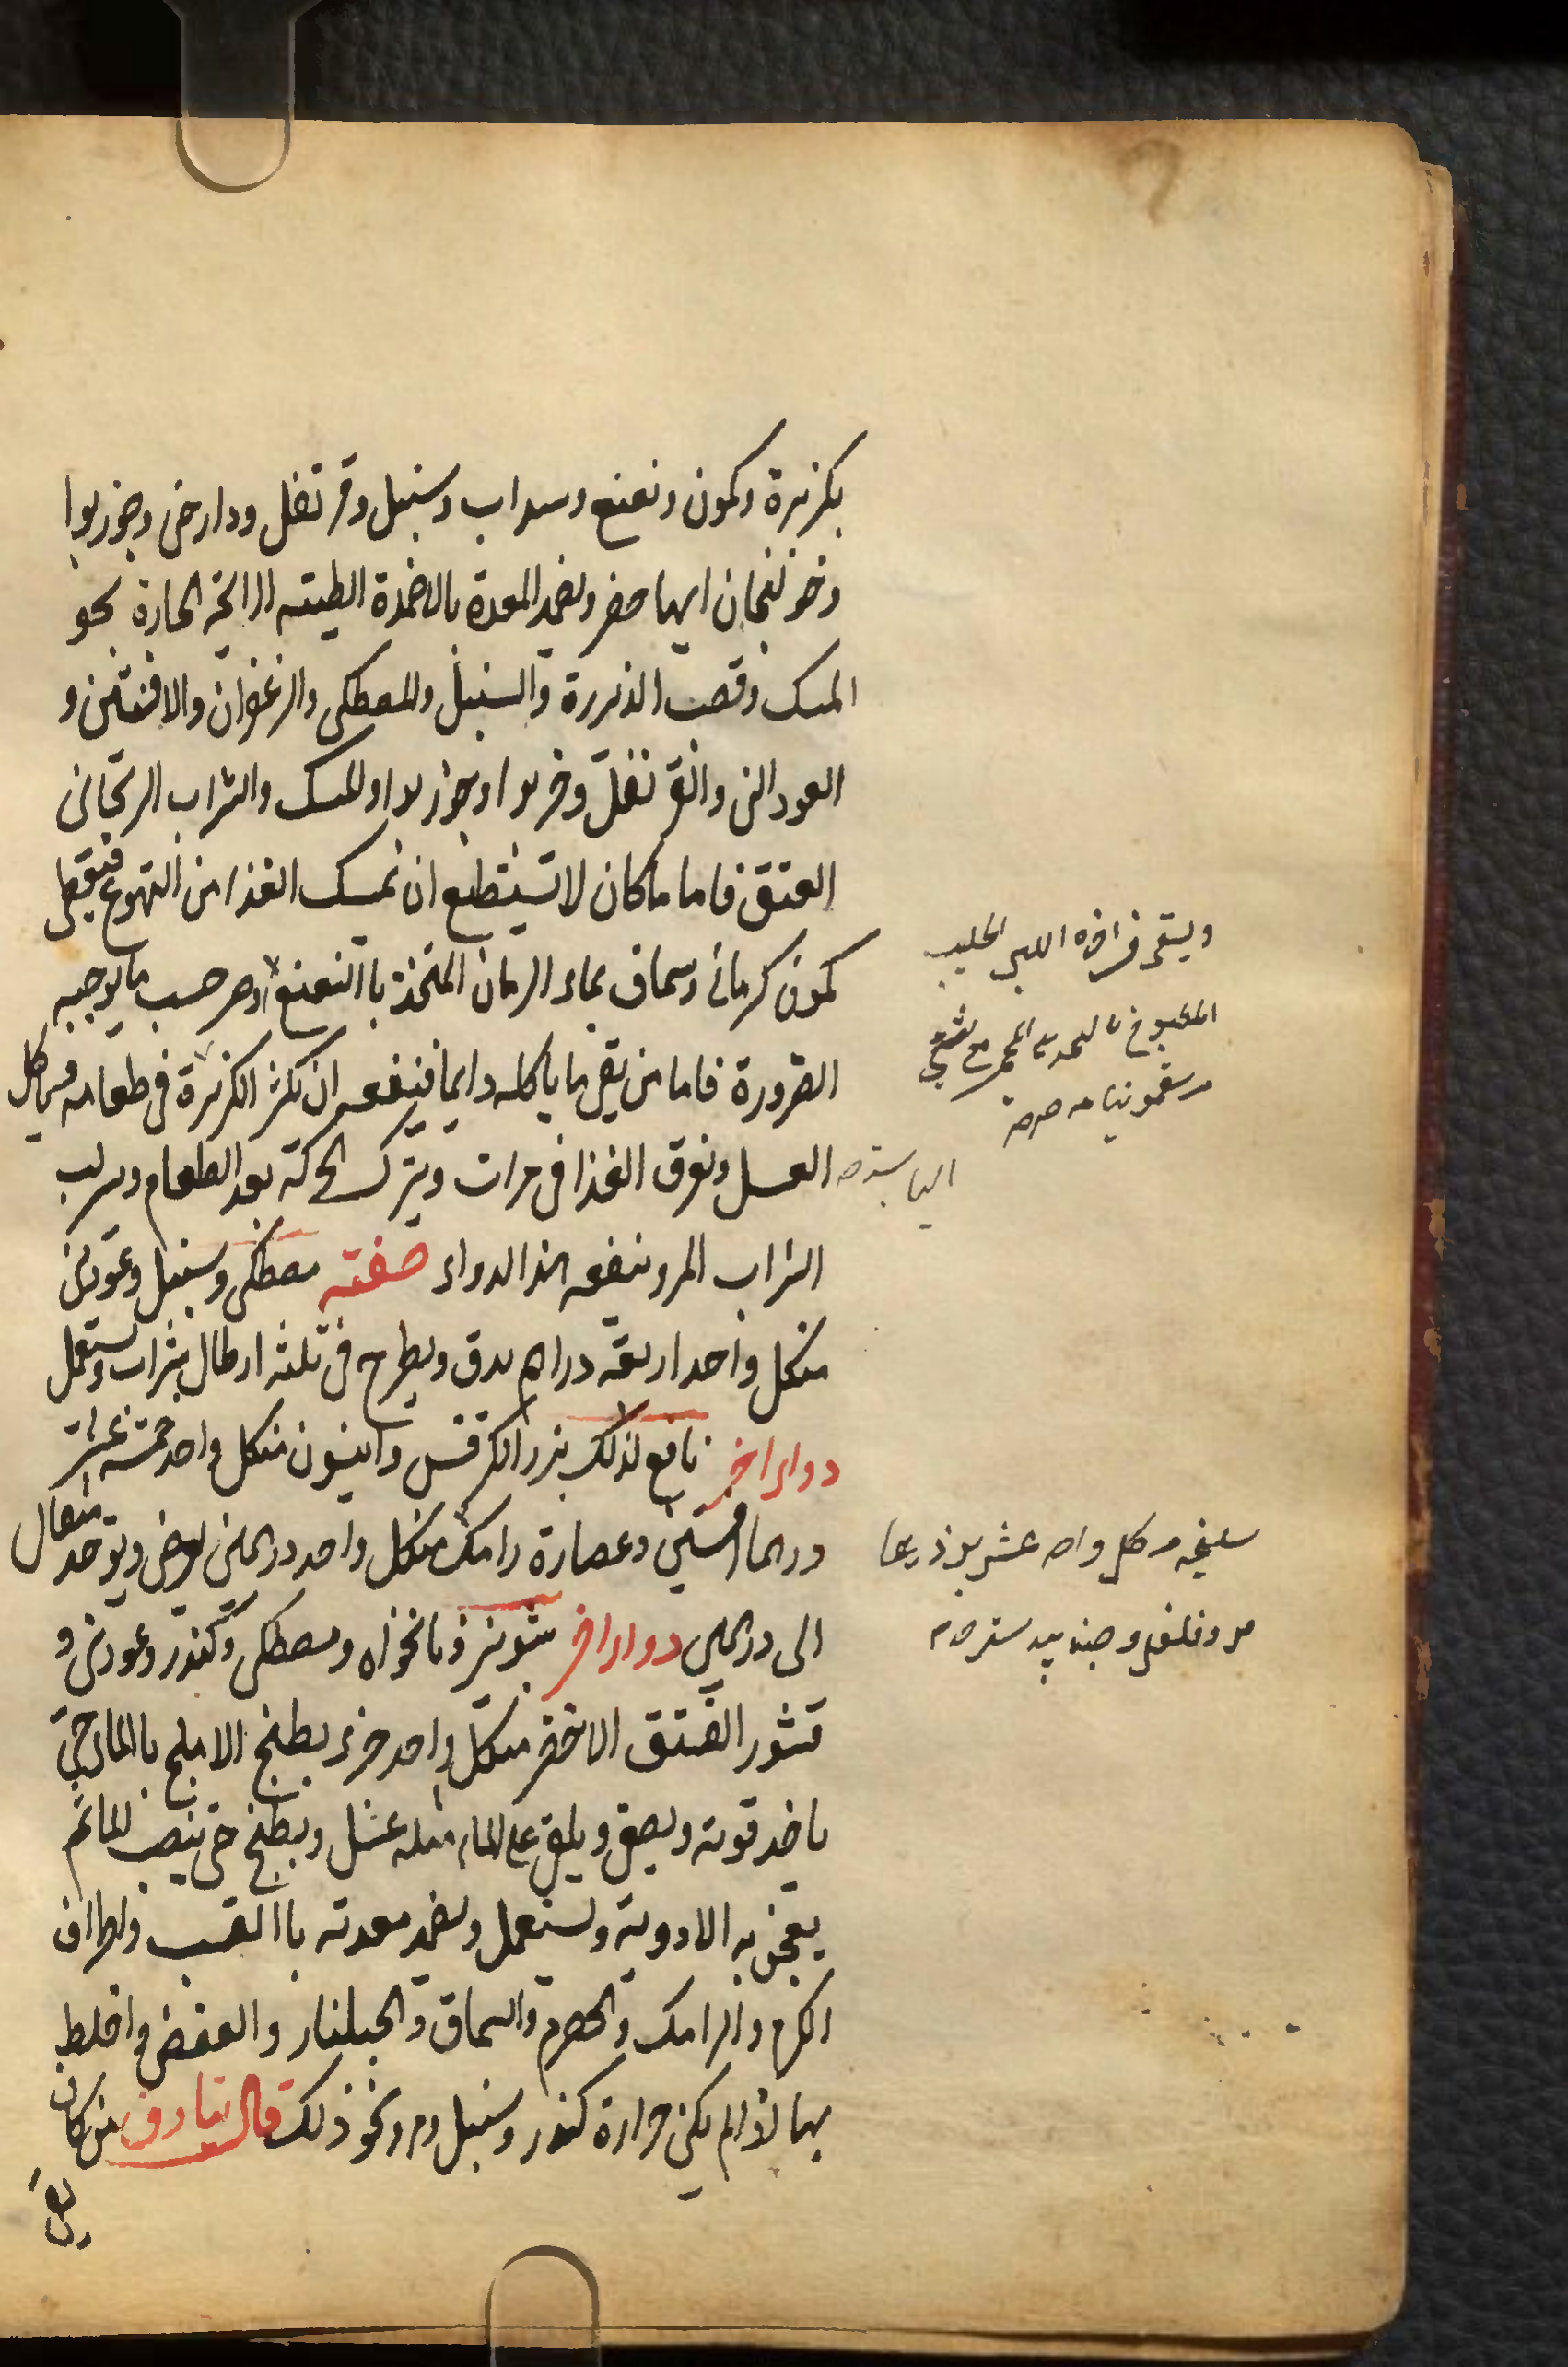 بكزبرة وكمون ونعنع وسداب وسنبل وقرنفل ودارصيني وجوزبوا
وخولنجان ايها حضر ويضمد المعدة بالاضمدة الطيبة الرائحة الحارة نحو
المسك وقصب الذريرة والسنبل والمصطكى والزعفران والافسنتين و
العود الني والقرنفل وخربوا وجوزبوا والمسك والشراب الريحاني
العتق فاما ما كان لا تستطيع ان تمسك الغذا من التهوع فيقطى
كمون كرماني وسماق بماء الرمان المتخذ باالنعنع حسب ما يوجبه
الضرورة فاما من يقي ما ياكله دايما فينفعه ان نكثر الكزبرة في طعامه وياكل
العسل ونفرق الغذا في مرات ويترك الحركة بعد الطعام ويشرب
الشراب المر وينفعه هذا الدواء صفته مصطكى وسنبل وعود ني
من كل واحد اربعة دراهم يدق ويطرح في ثلثة ارطال شراب ويستعمل
دواء اخر نافع لذلك بزر الكرفس وانيسون من كل واحد خمسة عشر
درهما افسنتين وعصارة رامك من كل واحد درهمين يرض ويوخذ مثقال
الى درهمين دواء اخر شونيز ونانخواه ومصطكى وكندر وعود ني و
قشور الفستق الاخضر من كل واحد جزء يطبخ الاملج باالماء حتى
ياخذ قوته ويصفى ويلقى على الماء مثله عسل ويطبخ حتى ينصب الماء ثم
يعجن به الادوية ويستعمل ويضمد معدته باالقسب واطراف
الكرم والرامك والحصرم والسماق والجلنار والعفص واخلط
بها اذا لم يكن حرارة كندر وسنبل ومر ونحو ذلك قال تيادوق من كان
ويسقى في اخره اللبن الحليب
المطبوخ بالحديد المحمى مع
اليابسة
سليخة من كل واحد عشرين درهما
مر وفلفل وجندبيدستر